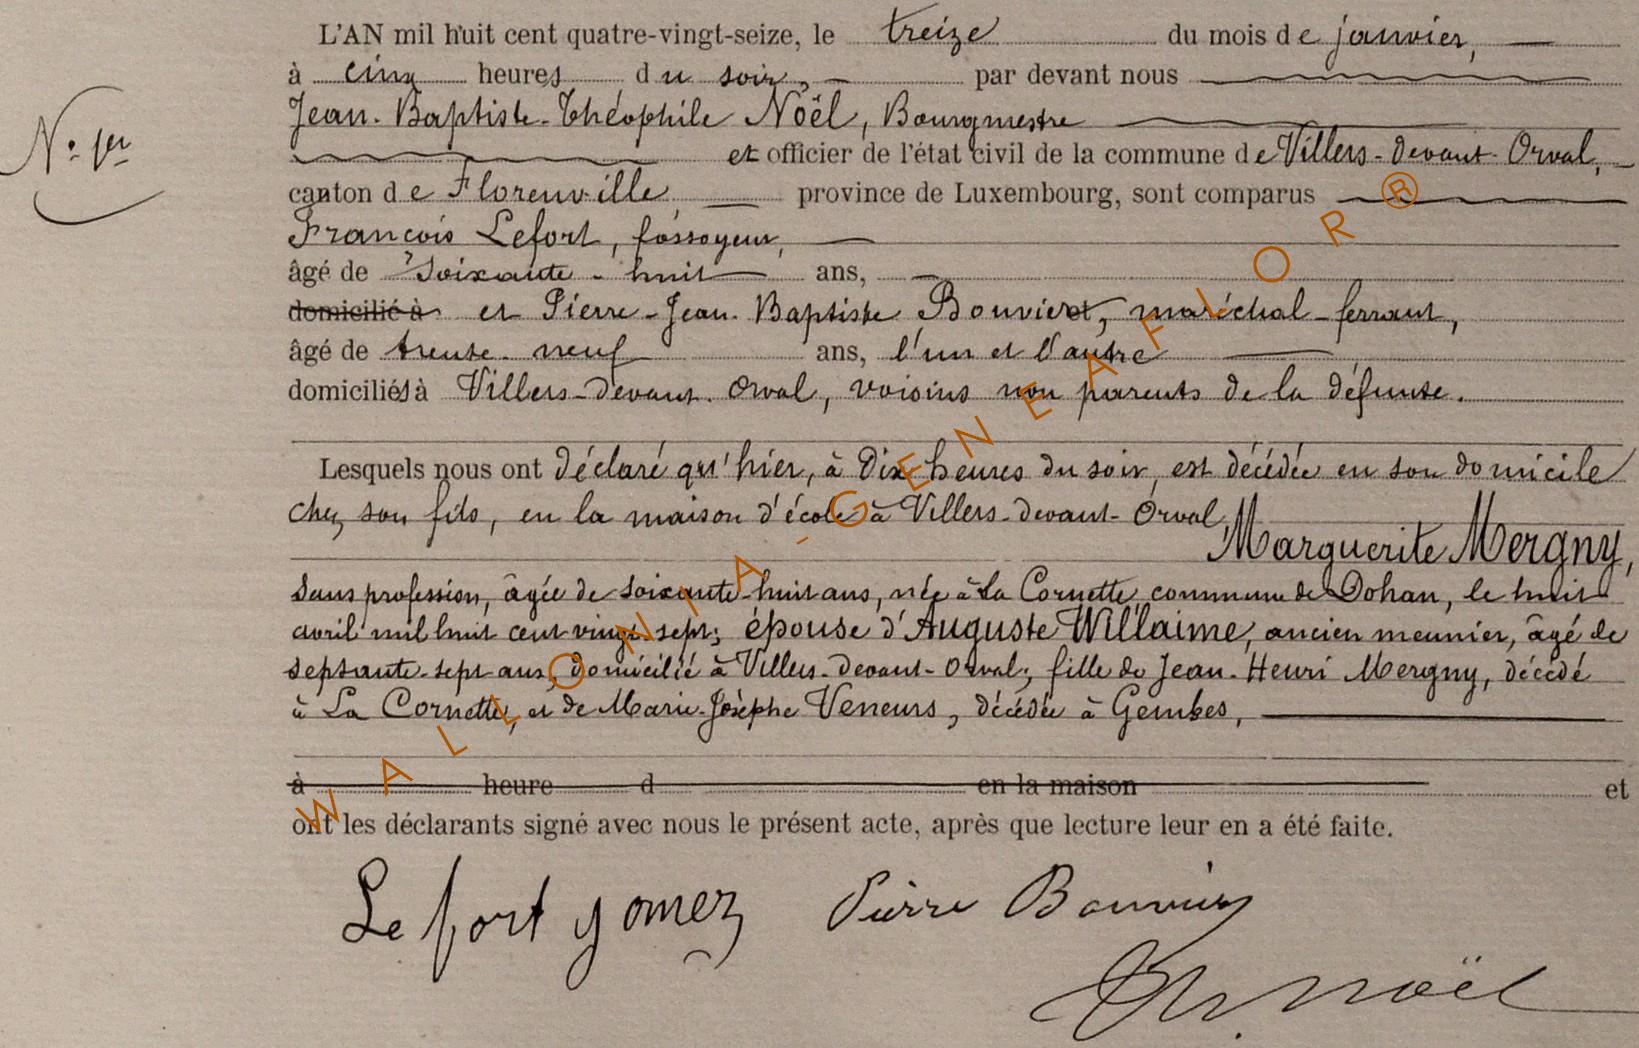 L'AN mil huit cent quatre-vingt-seize, le treize du mois de janvier,
à cinq heures du soir, par devant nous
N° 1er
Jean-Baptiste-Théophile Noël, Bourgmestre
et officier de l'état civil de la commune de Villers-devant-Orval,
canton de Florenville, province de Luxembourg, sont comparus
François Lefort, fossoyeur,
âgé de soixante-huit ans,
domicilié à et Pierre-Jean-Baptiste Bouvier, maréchal-ferrant,
âgé de trente-neuf ans, l'un et l'autre
domiciliés à Villers-devant-Orval, voisins non parents de la défunte.
Lesquels nous ont déclaré qu'hier, à dix heures du soir, est décédée en son domicile
chez son fils, en la maison d'école à Villers-devant-Orval,
Marguerite Mergny,
sans profession, âgée de soixante-huit ans, née à La Cornette commune de Dohan, le huit
avril mil huit cent vingt-sept; épouse d'Auguste Willaime, ancien meunier, âgé de
septante-sept ans, domicilié à Villers-devant-Orval; fille de Jean-Henri Mergny, décédé
à La Cornette, et de Marie-Josèphe Veneurs, décédée à Gembes,
à heure d en la maison et
ont les déclarants signé avec nous le présent acte, après que lecture leur en a été faite.
Lefort Pierre Bouvier
Th. Noël
WALLONIA-GENEAFLOR®